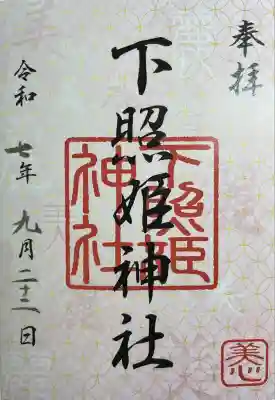 奉拝
下照姫神社
下照姫
神社
令和七年九月二十二日
美心